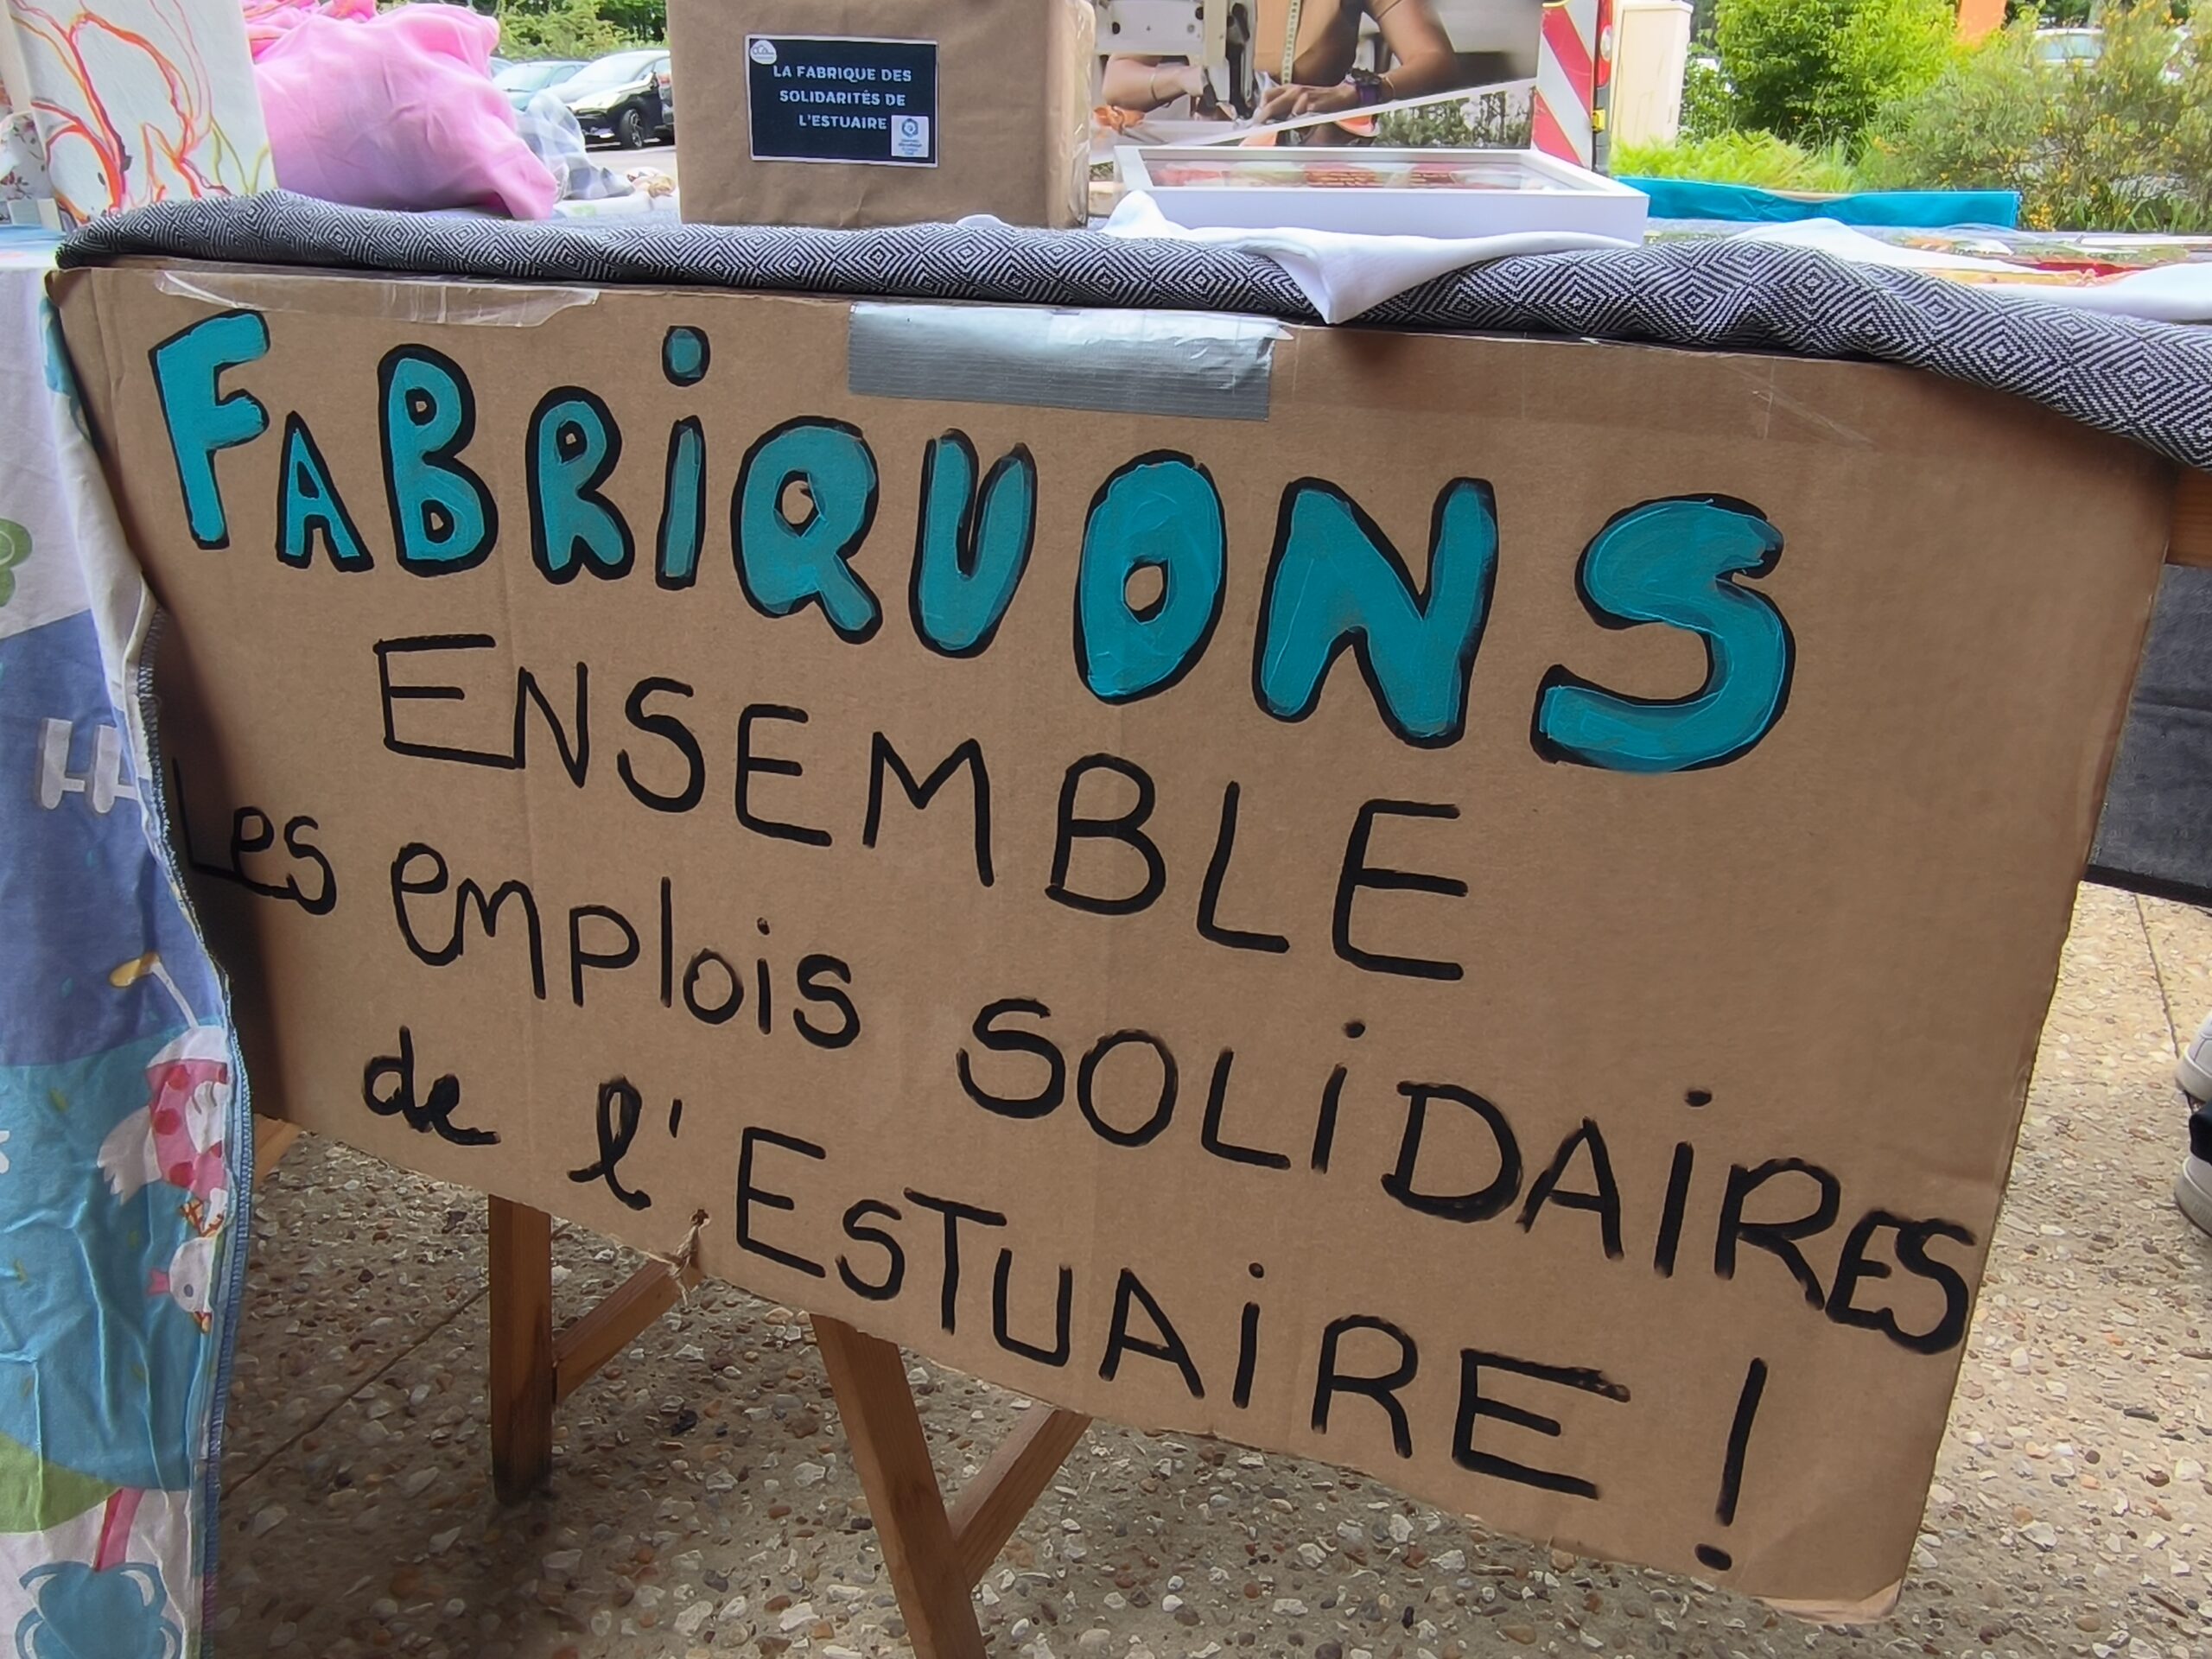 LA FABRIQUE DES
SOLIDARITÉS DE
L'ESTUAIRE
FABRiQUONS
ENSEMBLE
Les emplois SOLiDAiRES
de l'ESTUAiRE !